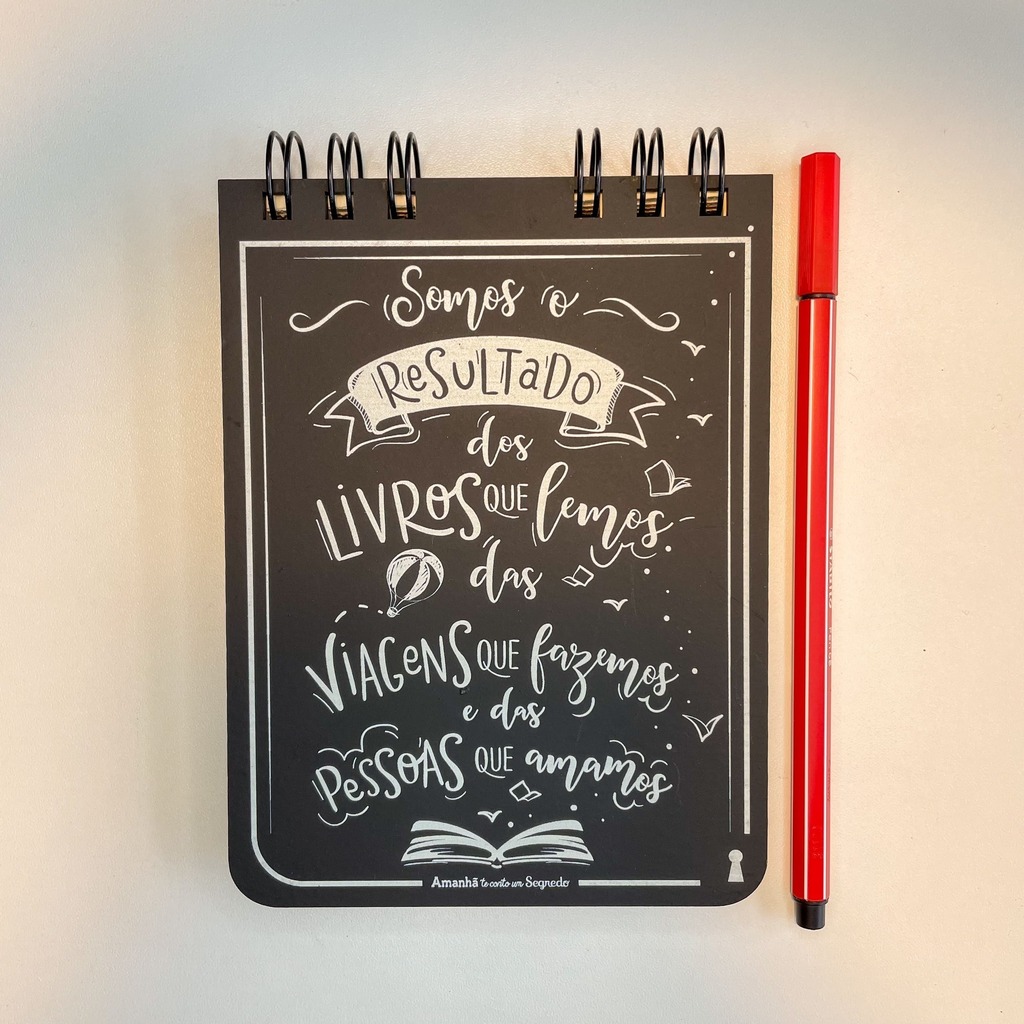 Somos o
ReSULTaDO
dos
LiVROS QUE lemos
das
ViAGeNS QUE fazemos
e das
PeSSOAS QUE amamos
Amanhã te conto um Segredo
STABILO